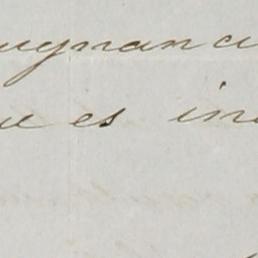 ugnanci
ue es ind